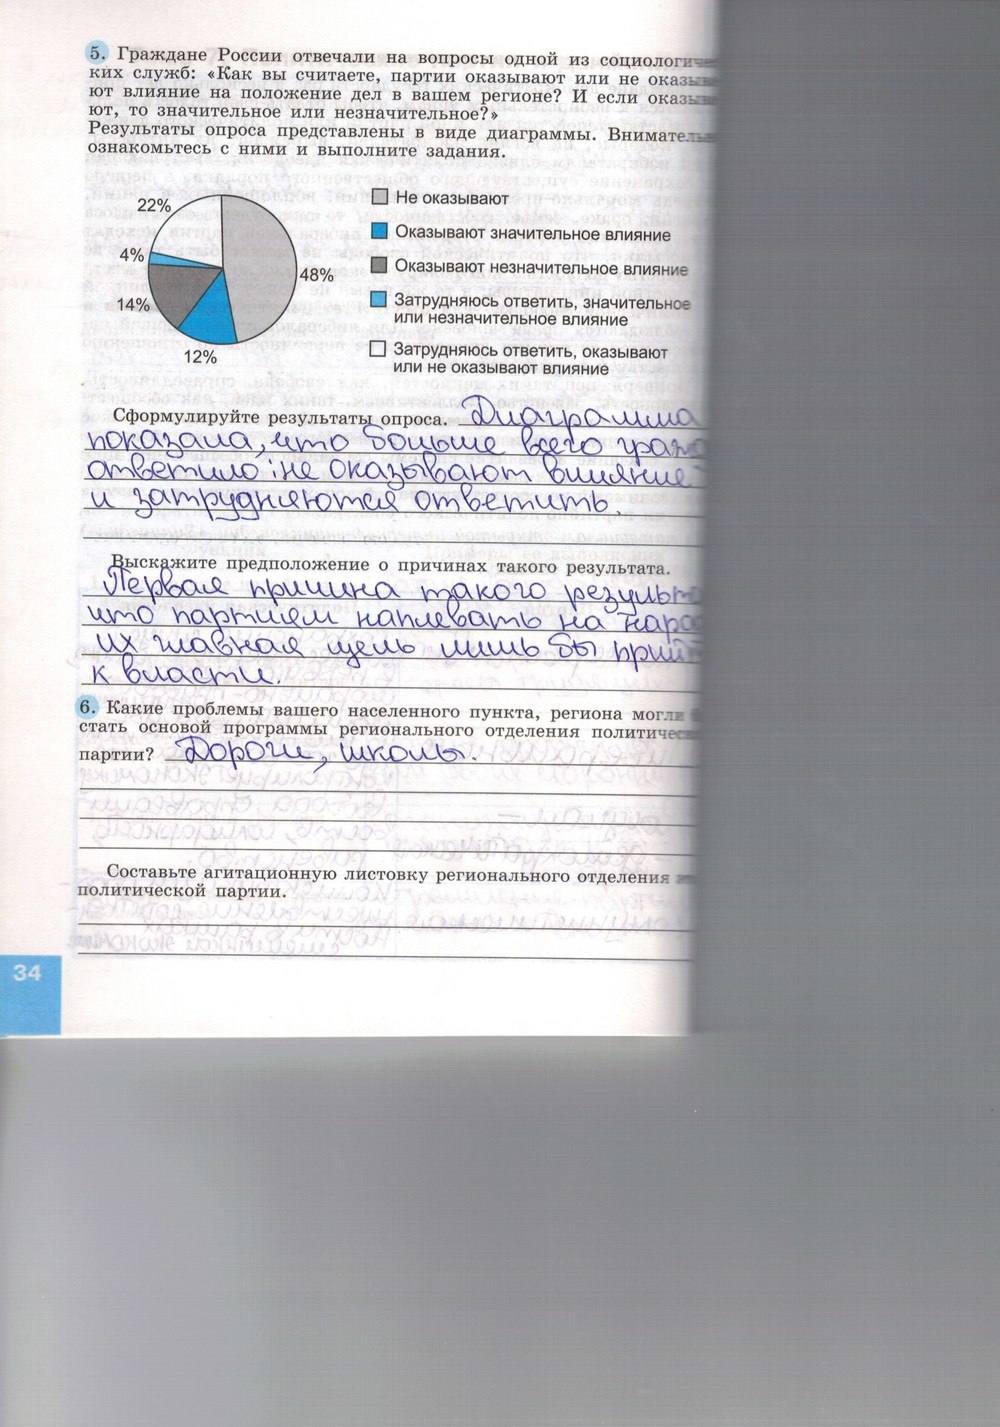 5. Граждане России отвечали на вопросы одной из социологичес
ких служб: «Как вы считаете, партии оказывают или не оказыва
ют влияние на положение дел в вашем регионе? И если оказыва
ют, то значительное или незначительное?»
Результаты опроса представлены в виде диаграммы. Внимательн
ознакомьтесь с ними и выполните задания.
22%
4%
14%
12%
48%
Не оказывают
Оказывают значительное влияние
Оказывают незначительное влияние
Затрудняюсь ответить, значительное
или незначительное влияние
Затрудняюсь ответить, оказывают
или не оказывают влияние
Сформулируйте результаты опроса. Диаграмма
показала, что больше всего граж
ответило: не оказывают влияние
и затрудняются ответить.
Выскажите предположение о причинах такого результата.
Первая причина такого результ
что партиям наплевать на наро
Их главная цель лишь бы прий
к власти.
6. Какие проблемы вашего населенного пункта, региона могли
стать основой программы регионального отделения политическ
партии? Дороги, школы.
Составьте агитационную листовку регионального отделения
политической партии.
34